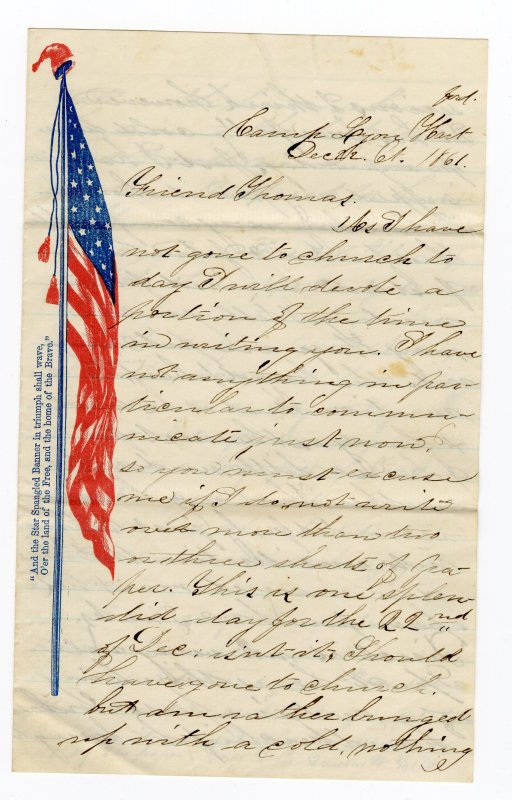 ford.
Camp Lyon Hart
Decbr. Ct. 1861.
Friend Thomas.
As I have
not gone to church to
day I will devote a
portion of the time
in writing you. I have
not anything in par-
ticular to commu-
nicate just now,
so you must excuse
me if I do not write
over more than two
or three sheets of pa-
per. This is one splen-
did day for the 22nd
of Dec. isnt it, I should
have gone to church.
but am rather bunged
up with a cold, nothing
"And the Star Spangled Banner in triumph shall wave,
O'er the land of the Free, and the home of the Brave."